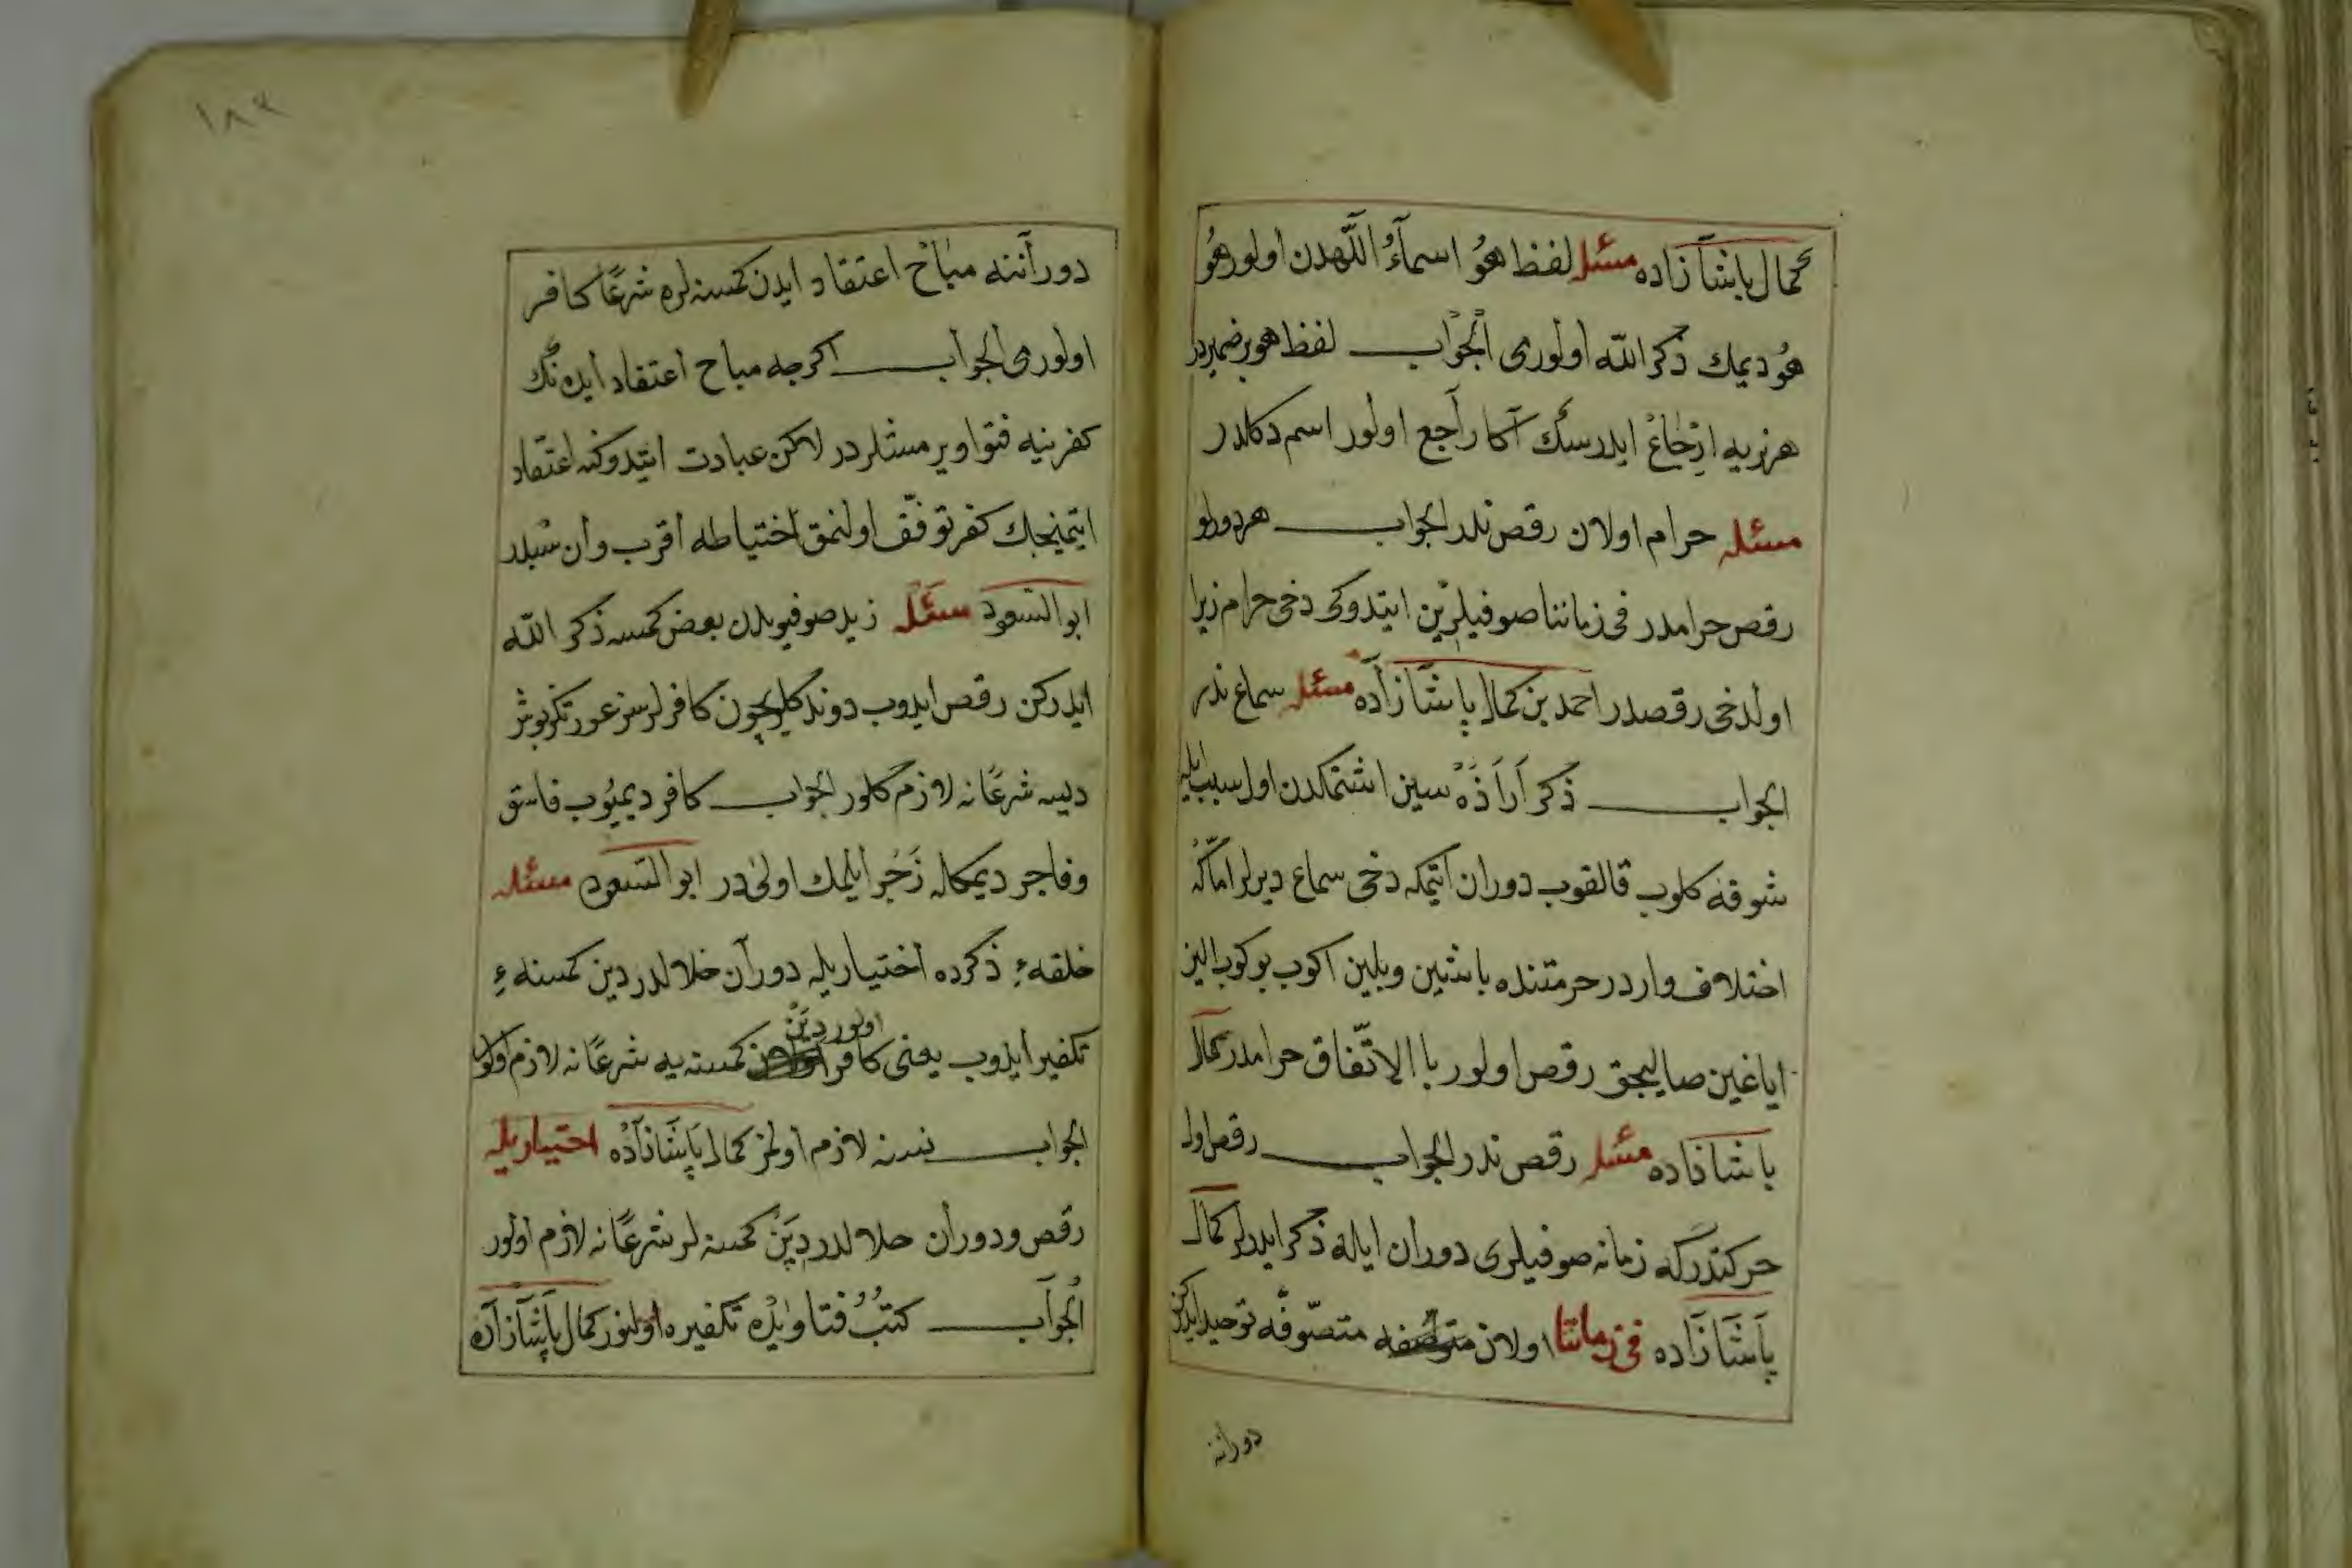 كمال پاشا زاده مسئله لفظ هو اسماء اللهدن اولور هو
هو ديمك ذكر الله اولورمى الجواب لفظ هو بر ضميردر
هرنه يه ارجاع ايدرسڭ آكا راجع اولور اسم دكلدر
مسئله حرام اولان رقص ندر الجواب هر دورلو
رقص حرامدر فى زماننا صوفيلرين ايتدوكى دخى حرام زيرا
اولدخى رقصدر احمد بن كمال پاشا زاده مسئله سماع ندر
الجواب ذكر آرا ذه سين اشتمكدن اول سبب ايله
شوقه كلوب قالقوب دوران ايتمكه دخى سماع ديرلر اماكه
اختلاف واردر حرمتنده باشين وبلين اكوب بوكوب الين
اياغين صاليجق رقص اولور باالاتفاق حرامدر كمال
باشا زاده مسئله رقص ندر الجواب رقص اول
حركتدركه زمانه صوفيلرى دوران ايله ذكر ايدرلر كمال
پاشا زاده فى زماننا اولان متصوفه توحيد ايدركن
دورانه
دوراننه مباح اعتقاد ايدن كمسنه لره شرعًا كافر
اولورمى الجواب اكرجه مباح اعتقاد ايده نڭ
كفرينيه فتوا ويرمشلردر لاكن عبادت ايتدوكنه اعتقاد
ايتمينجك كفر توقف اولنمق اختياطه اقرب وان سبلدر
ابو السعود مسئله زيد صوفيلردن بعض كمسه ذكر الله
ايدركن رقص ايدوب دوندكليچون كافرلرسز عورتكز بوش
ديسه شرعًا نه لازم كلور الجواب كافر ديميوب فاسق
وفاجر ديمكله زجر ايلمك اولى در ابو السعود مسئله
خلقهء ذكرده اختياريله دوران خلالدر دين كمسنه ء
تكفير ايدوب يعنى كافر اولور دين كمسنه يه شرعًا نه لازم اولور
الجواب نسنه لازم اولمز كمال پاشا زاده احتياريله
رقص ودوران حلالدر دين كمسنه لر شرعًا نه لازم اولور
الجواب كتب فتاويده تكفيره اولنور كمال پاشا زاده